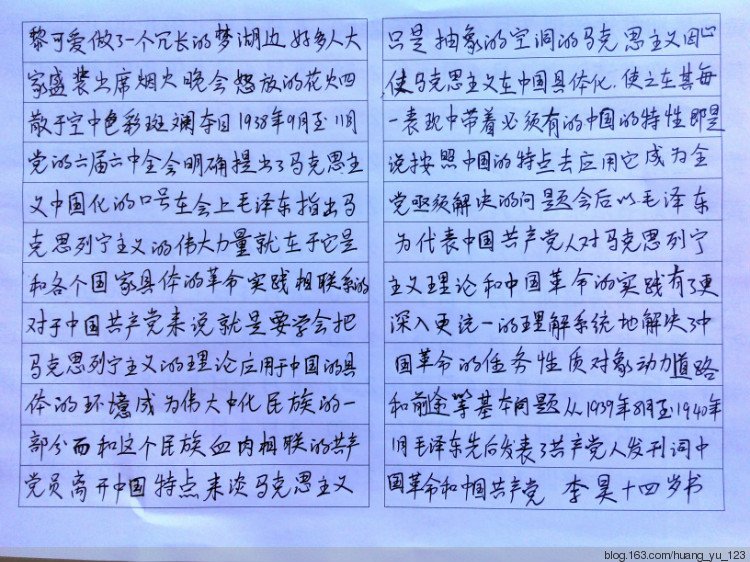 黎可爱做了一个冗长的梦湖边好多人大
家盛装出席烟火晚会怒放的花火四
散于空中色彩斑斓夺目1938年9月至11月
党的六届六中全会明确提出了马克思主
义中国化的口号在会上毛泽东指出马
克思列宁主义的伟大力量就在于它是
和各个国家具体的革命实践相联系的
对于中国共产党来说就是要学会把
马克思列宁主义的理论应用于中国的具
体的环境成为伟大中化民族的一
部分而和这个民族血肉相联的共产
党员离开中国特点来谈马克思主义
只是抽象的空洞的马克思主义因心
使马克思主义在中国具体化.使之在其每
一表现中带着必须有的中国的特性即是
说按照中国的特点去应用它成为全
党亟须解决的问题会后以毛泽东
为代表中国共产党人对马克思列宁
主义理论和中国革命的实践有了更
深入更统一的理解系统地解决了中
国革命的任务性质对象动力道路
和前途等基本问题从1939年8月至1940年
1月毛泽东先后发表了共产党人发刊词中
国革命和中国共产党 李昊十四岁书
blog.163.com/huang_yu_123